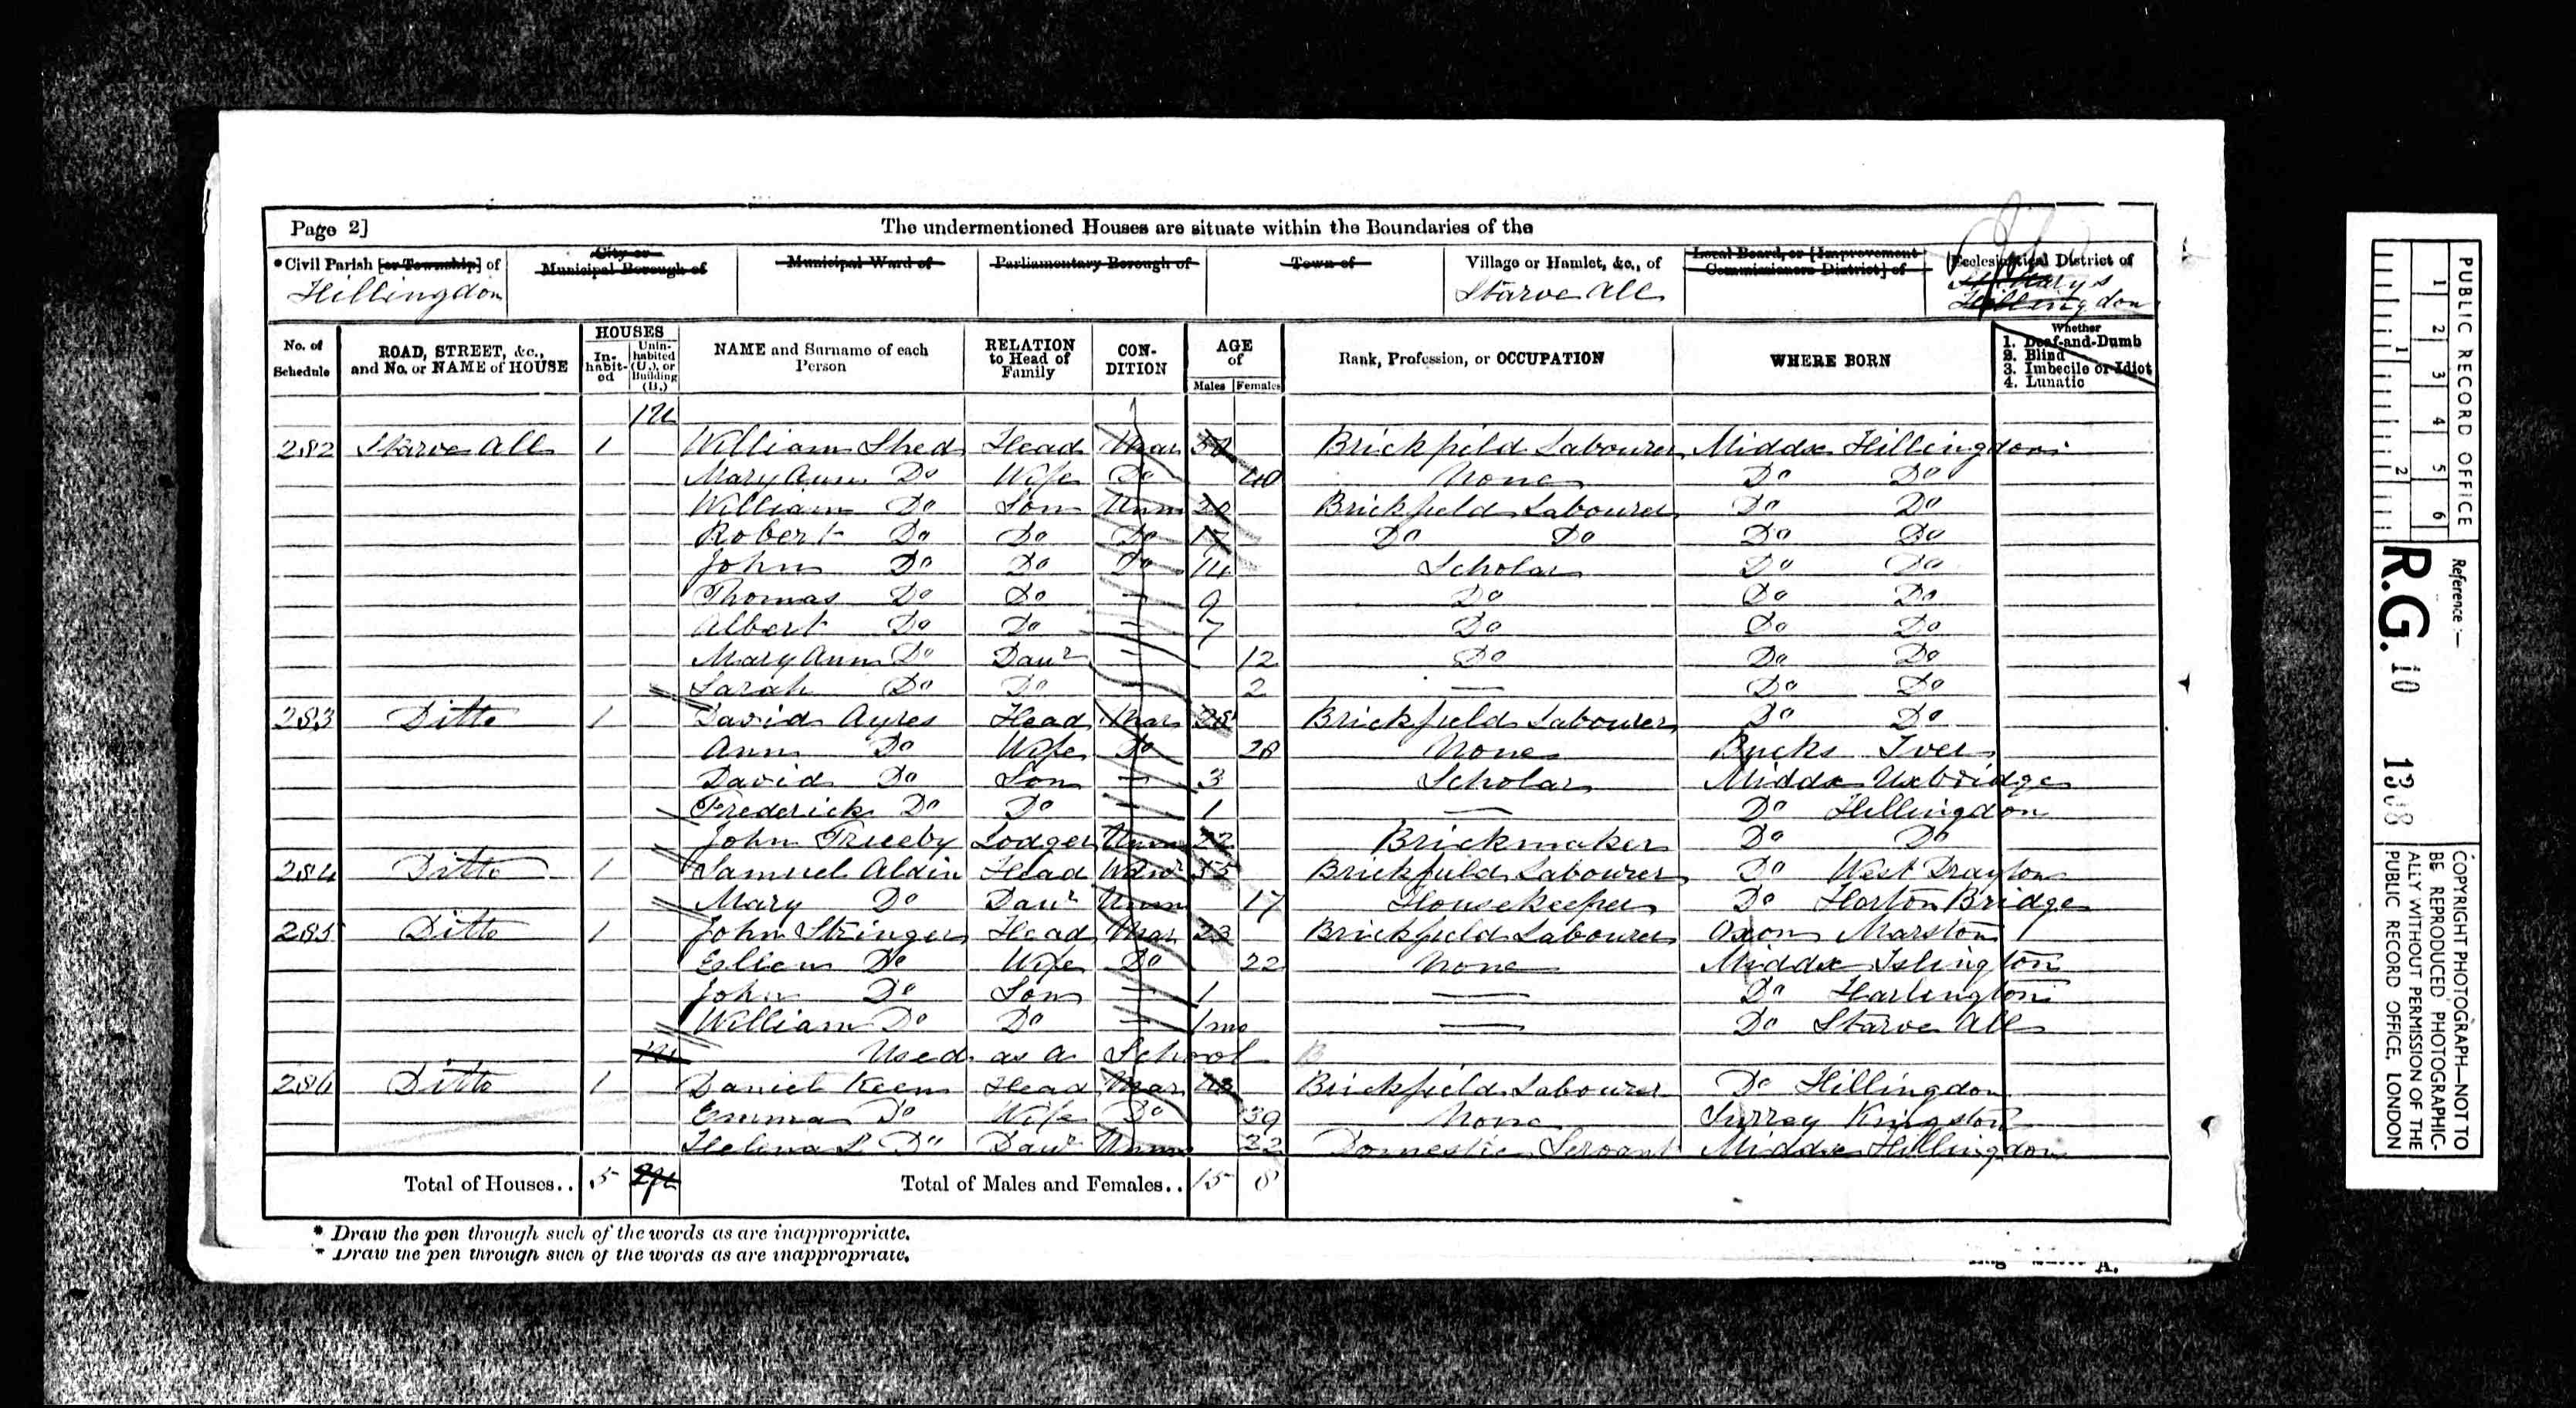 Page 2]
The undermentioned Houses are situate within the Boundaries of the
*Civil Parish [or Township] of
Hillingdon
City or Municipal Borough of
Municipal Ward of
Parliamentary Borough of
Town of
Village or Hamlet, &c., of
Starve All
Local Board, or [Improvement Commissioners District] of
Ecclesiastical District of
St Marys
Hillingdon
No. of Schedule
ROAD, STREET, &c., and No. or NAME of HOUSE
HOUSES
In-habit-ed
Unin-habited (U.), or Building (B.)
NAME and Surname of each Person
RELATION to Head of Family
CON-DITION
AGE of
Males Females
Rank, Profession, or OCCUPATION
WHERE BORN
Whether
1. Deaf-and-Dumb
2. Blind
3. Imbecile or Idiot
4. Lunatic
1U
282 Starve All 1 William Shed Head Mar Brickfield Labourer Middx Hillingdon
Mary Ann Do Wife Do 40 None Do Do
William Do Son Unm 20 Brickfield Labourer Do Do
Robert Do Do Do 17 Do Do Do Do
John Do Do Do 14 Scholar Do Do
Thomas Do Do - 9 Do Do Do
Albert Do Do - 7 Do Do Do
Mary Ann Do Daur - 12 Do Do Do
Sarah Do Do - 2 — Do Do
283 Ditto 1 David Ayres Head Mar 28 Brickfield Labourer Do Do
Ann Do Wife Do 28 None Bucks Iver
David Do Son - 3 Scholar Middx Uxbridge
Frederick Do Do - 1 — Do Hillingdon
John Lodger Unm 22 Brickmaker Do Do
284 Ditto 1 Samuel Aldin Head Widr 55 Brickfield Labourer Do West Drayton
Mary Do Daur Unm 17 Housekeeper Do Horton Bridge
285 Ditto 1 John Stringer Head Mar 23 Brickfield Labourer Oxon Marston
Ellen Do Wife Do 22 None Middx Islington
John Do Son - 1 — Do Harlington
William Do Do - 1mo — Do Starve All
1U Used as a School
286 Ditto 1 Daniel Keen Head Mar Brickfield Labourer Do Hillingdon
Emma Do Wife Do 39 None Surrey Kingston
Helena S Do Daur Unm 22 Domestic Servant Middx Hillingdon
Total of Houses.. 5 2U Total of Males and Females.. 15 8
* Draw the pen through such of the words as are inappropriate.
* Draw the pen through such of the words as are inappropriate.
A.
PUBLIC RECORD OFFICE
1 2 3 4 5 6
1 2
Reference :—
R.G. 10 1308
COPYRIGHT PHOTOGRAPH—NOT TO
BE REPRODUCED PHOTOGRAPHIC-
ALLY WITHOUT PERMISSION OF THE
PUBLIC RECORD OFFICE, LONDON